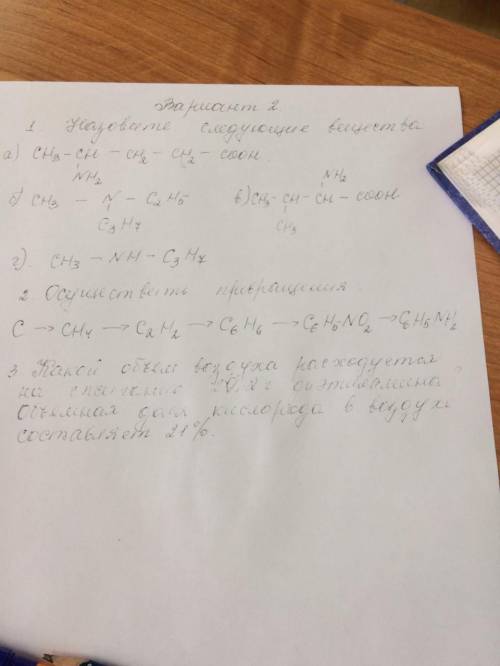 Вариант 2.
1 Назовите следующие вещества
а) CH3 - CH - CH2 - CH2 - COOH.
NH2
NH2
б) CH3 - N - C2H5 в) CH3 - CH - CH - COOH
C3H7 CH3
г). CH3 - NH - C3H7
2. Осуществить превращения.
C → CH4 → C2H2 → C6H6 → C6H5NO2 → C6H5NH2
3 Какой объем воздуха расходуется
на сжигание г диэтиламина
Объемная доля кислорода в воздухе
составляет 21%.